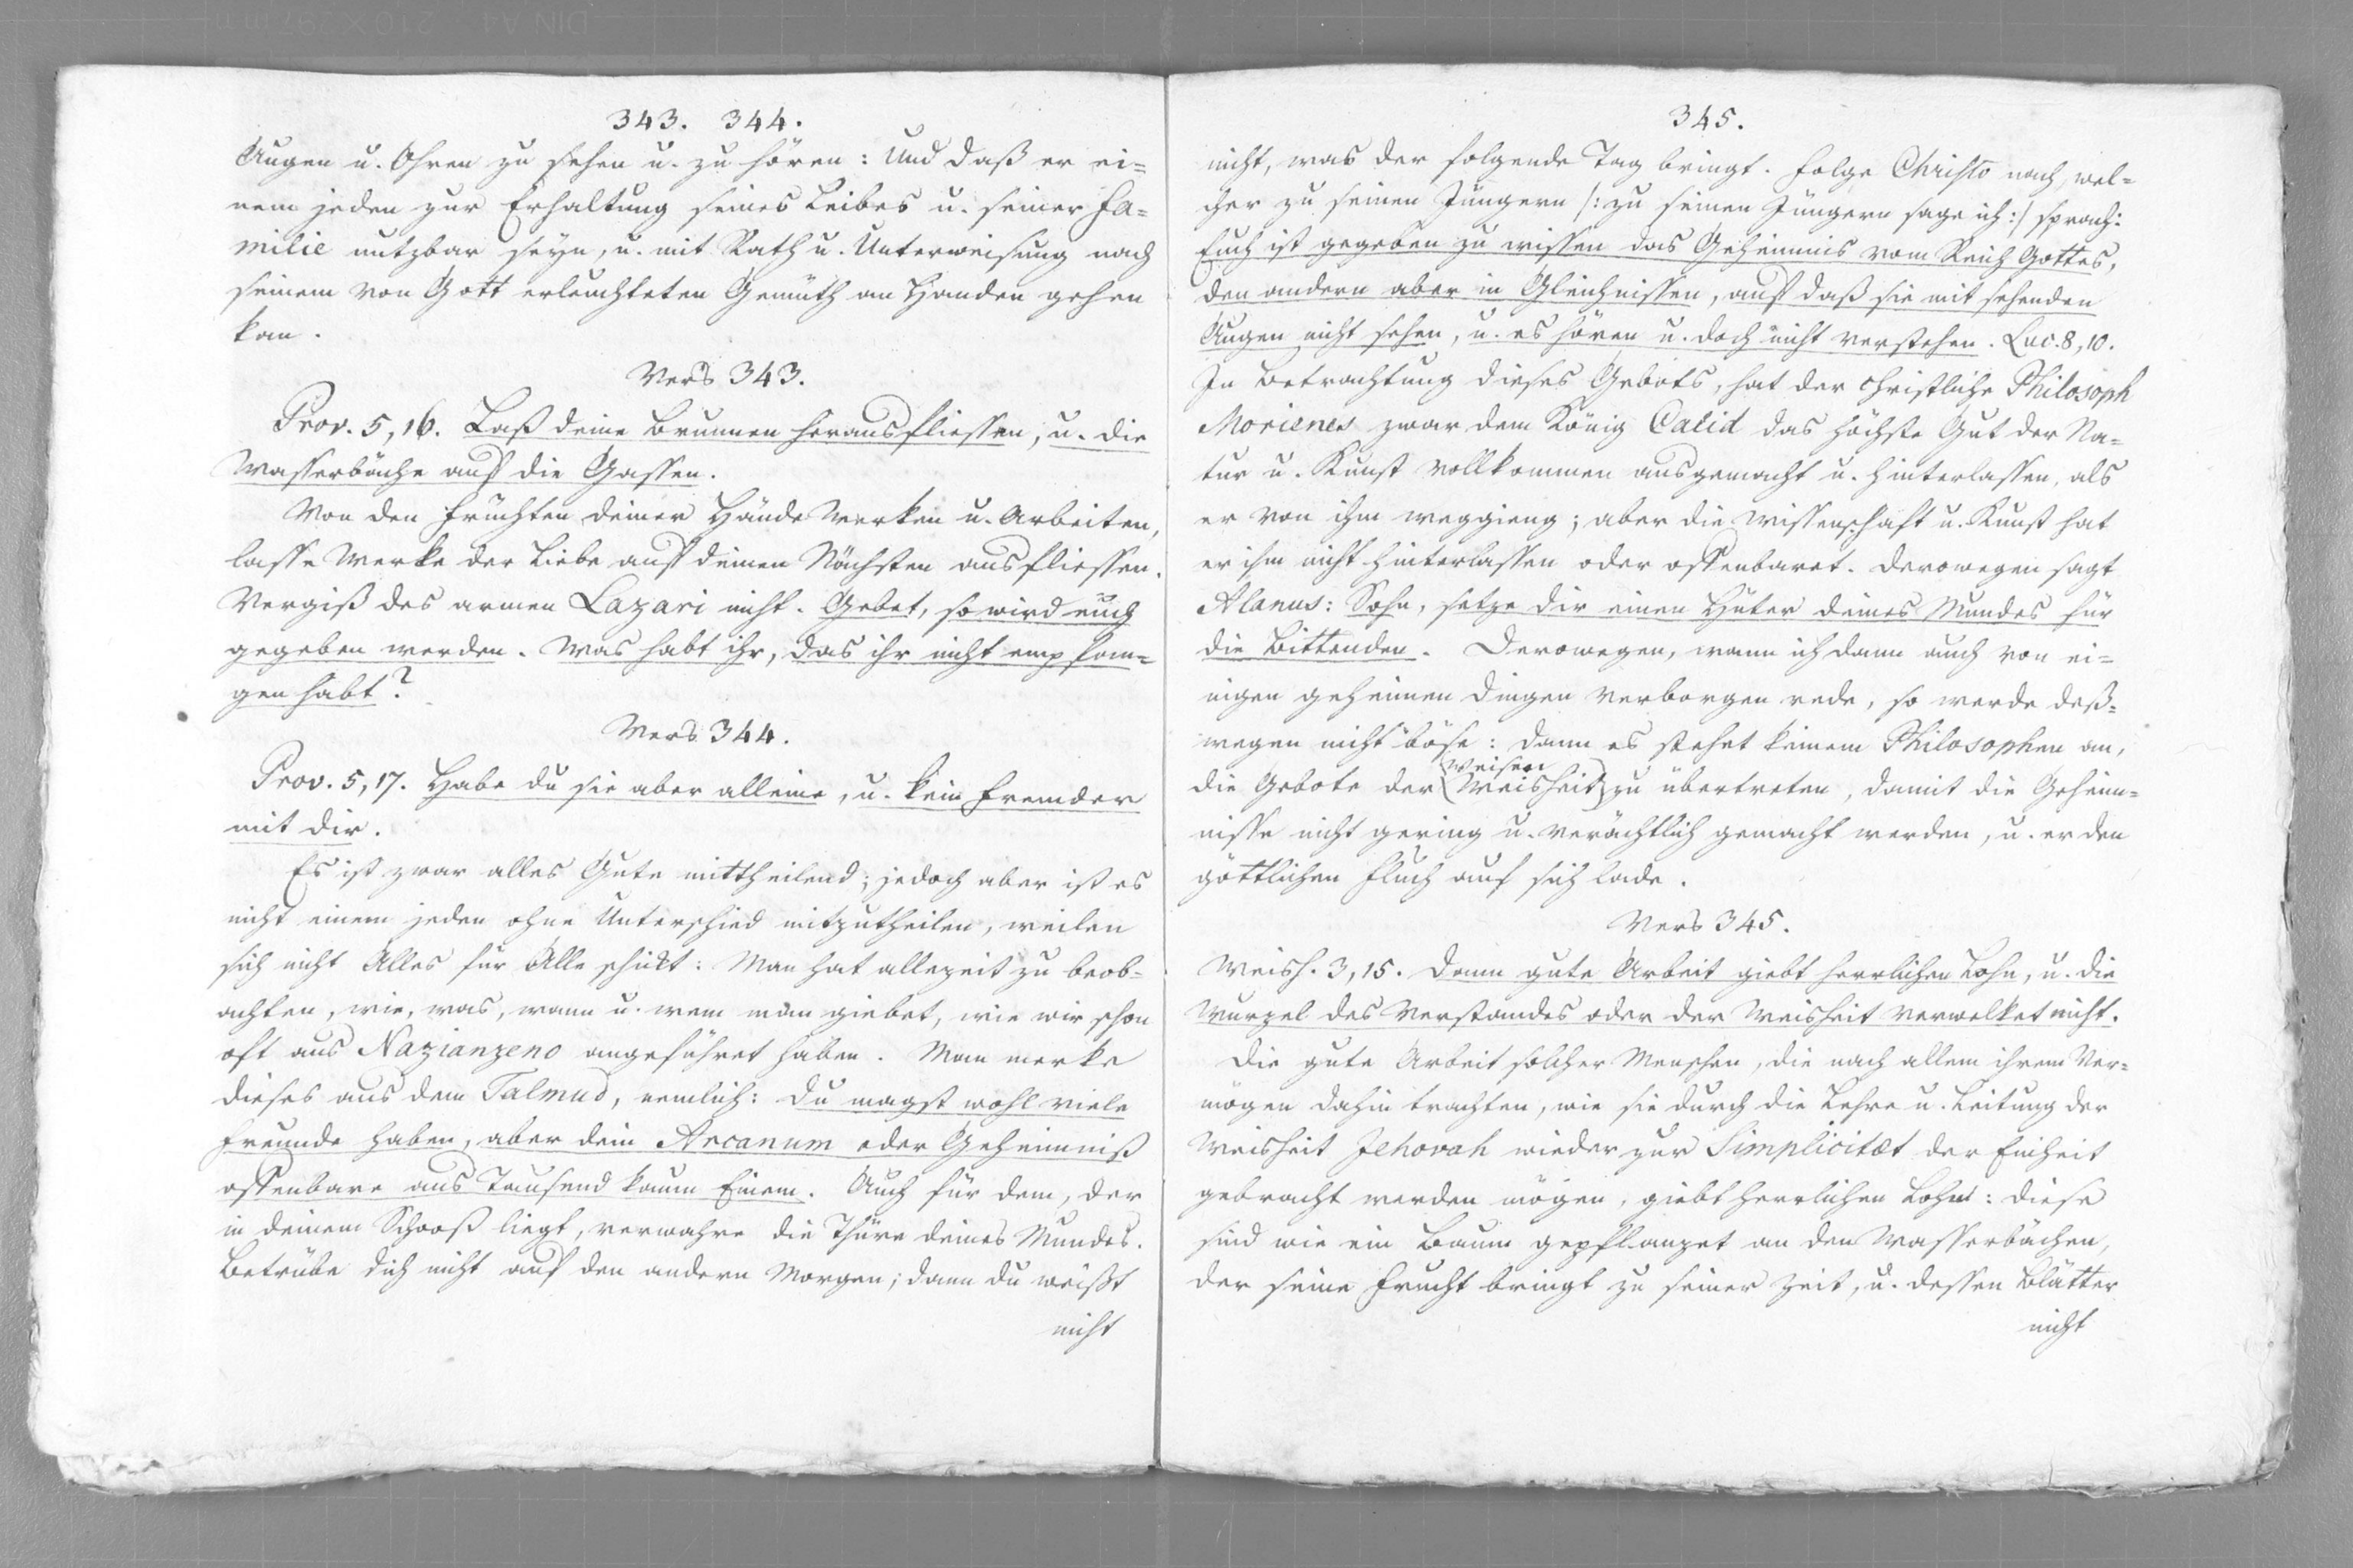 343. 344.
Augen u. Ohren zu sehen u. zu hören: Und daß er ei=
nem jeden zur Erhaltung seines Leibes u. seiner Fa=
milie nutzbar seyn, u. mit Rath u. Unterweisung nach
seinem von Gott erleuchteten Gemüth an Handen gehen
kan.
Vers 343.
Prov. 5, 16. Laß deine Brunnen herausfliessen, u. die
Wasserbäche auf die Gassen.
Von den Früchten deiner Hände Werken u. Arbeiten,
lasse Werke der Liebe auf deinen Nächsten ausfliessen.
Vergiß des armen Lazari nicht. Gebet, so wird euch
gegeben werden. Was habt ihr, das ihr nicht empfan=
gen habt?
Vers 344.
Prov. 5, 17. Habe du sie aber alleine, u. kein Fremder
mit dir.
Es ist zwar alles Gute mittheilend; jedoch aber ist es
nicht einem jeden ohne Unterschied mitzutheilen, weilen
sich nicht Alles für Alle schickt: Man hat allezeit zu beob=
achten, wie, was, wann u. wem man giebet, wie wir schon
oft aus Nazianzeno angeführet haben. Man merke
dieses aus dem Talmud, nemlich: Du magst wohl viele
Freunde haben, aber dein Arcanum oder Geheimniß
offenbare aus Tausend kaum Einem. Auch für dem, der
in deinem Schooß liegt, verwahre die Thüre deines Mundes.
Betrübe dich nicht auf den andern Morgen; dann du weißt
nicht
345.
nicht, was der folgende Tag bringt. Folge Christo nach, wel=
cher zu seinen Jüngern /: zu seinen Jüngern sage ich :/ sprach:
Euch ist gegeben zu wissen das Geheimnis vom Reich Gottes,
den andern aber in Gleichnissen, auf daß sie mit sehenden
Augen nicht sehen, u. es hören u. doch nicht verstehen. Luc. 8, 10.
In Betrachtung dieses Gebots, hat der christliche Philosoph
Morienes zwar dem König Calid das höchste Gut der Na=
tur u. Kunst vollkommen ausgemacht u. hinterlassen, als
er von ihm weggieng; aber die Wissenschaft u. Kunst hat
er ihm nicht hinterlassen oder offenbaret. Derowegen sagt
Alanus: Sohn, setze dir einen Hüter deines Mundes für
die Bittenden. Derowegen, wann ich dann auch von ei=
nigen geheimen Dingen verborgen rede, so werde deß=
wegen nicht böse: dann es stehet keinem Philosophen an,
Weisen
die Gebote der (Weisheit) zu übertreten, damit die Geheim=
nisse nicht gering u. verächtlich gemacht werden, u. er den
göttlichen Fluch auf sich lade.
Vers 345.
Weish. 3, 15. Dann gute Arbeit giebt herrlichen Lohn, u. die
Wurzel des Verstandes oder der Weisheit verwelket nicht.
Die gute Arbeit solcher Menschen, die nach allem ihrem Ver=
mögen dahin trachten, wie sie durch die Lehre u. Leitung der
Weisheit Jehovah wieder zur Simplicitæt der Einheit
gebracht werden mögen, giebt herrlichen Lohn: diese
sind wie ein Baum gepflanzet an den Wasserbächen,
der seine Frucht bringt zu seiner Zeit, u. dessen Blätter
nicht